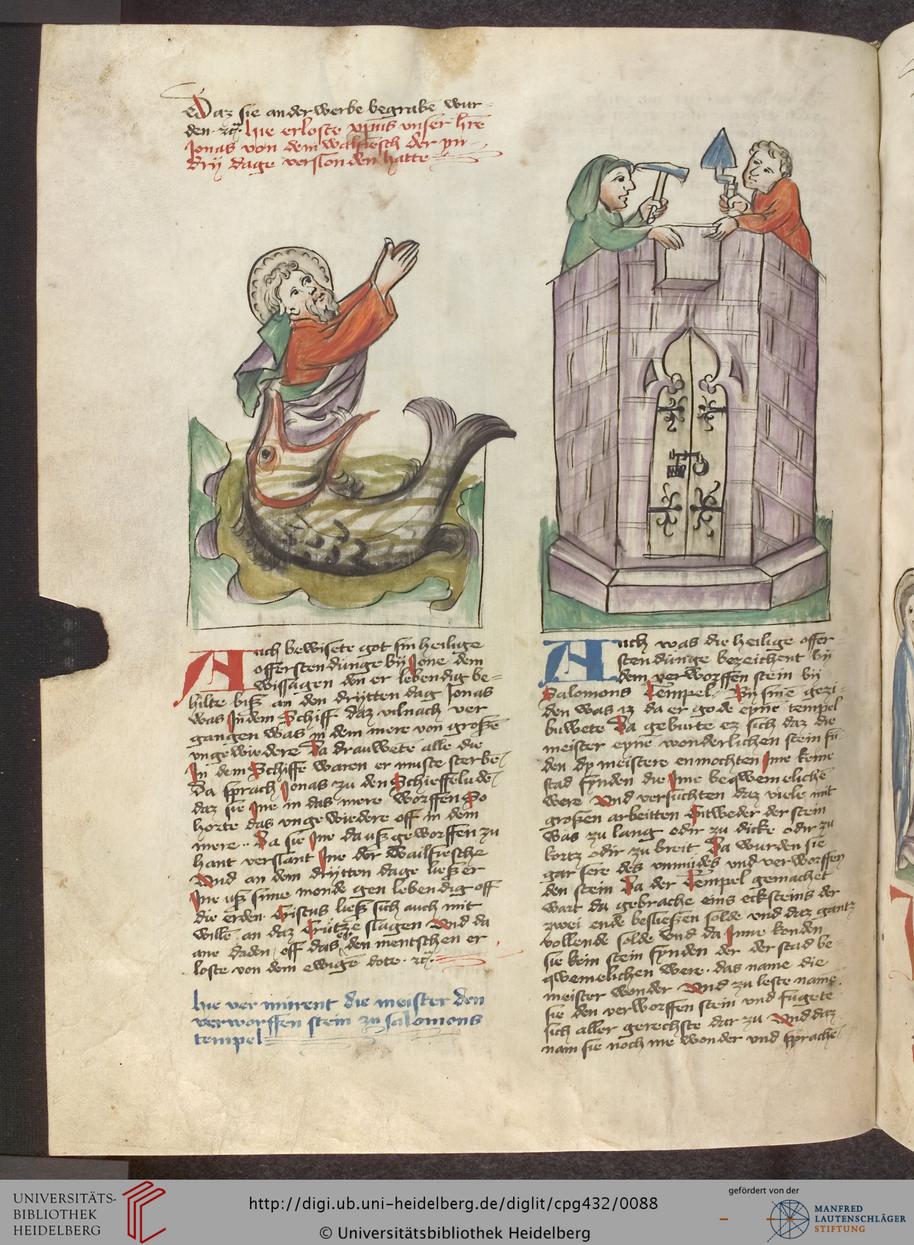 Daz sie anderwerbe begrabe wur-
den ⁊c̃. Hie erloste xp̃us unser h̃re
Jonas von dem walfiesch der yn
dry dage verslonden hatte
Auch bewisete got sin heilige
offerstendunge by Jone dem
wissagen den er lebendig be-
hilte biß an den drytten dag Jonas
was Jn dem Schiff daz vilnach ver
gangen was in dem mere von große
ungewiedere Da drauwete alle die
Jn dem Schiffe waren er muste sterbe
Da sprach Jonas zu den Schieffelude
daz sie Jne in das mere worffen So
horte das ungewiedere off in dem
mere Da sie Jne da uß geworffen zu
hant verslant Jne der wailfiesche
Und an dem drytten dage ließ er
Jne uß sime monde gen lebendig off
die erden Cristus ließ sich auch mit
wille an daz Crütze slagen Und da
ane daden off das er den mentschen er
loste von dem ewige dote ⁊c̃.
Hie vermurent die meister den
verworffen stein zu Salomons
tempel
Auch was die heilige offer-
stendunge bezeichent by
dem verworffen stein by
Salomons Tempel By sine gezi-
den was iz da er gode eyne tempel
buwete Da geburte ez sich daz die
meister eyne wonderlichen stein fu
den dy meistere enmochten Jme keine
stad fynden die Jme beqwemeliche
were Und versuchten daz viele mit
großen arbeitten Entweder der stein
was zu lang odir zu dicke odir zu
kortz odir zu breit Da wurden sie
gar sere des unmudes und verworffen
den stein Da der Tempel gemachet
wart da gebrache eins ecksteins der
zwei ende besließen solde und daz gantz
vollende solde Und da Jme konden
sie kein stein fynden der der stad be-
qwemelichen were das name die
meister wonder Und zu leste name
sie den verworffen stein und fugete
sich aller gerechste dar zu Und daz
nam sie noch me wonder und sprache
UNIVERSITÄTS-
BIBLIOTHEK
HEIDELBERG
http://digi.ub.uni-heidelberg.de/diglit/cpg432/0088
© Universitätsbibliothek Heidelberg
gefördert von der
MANFRED
LAUTENSCHLÄGER
STIFTUNG